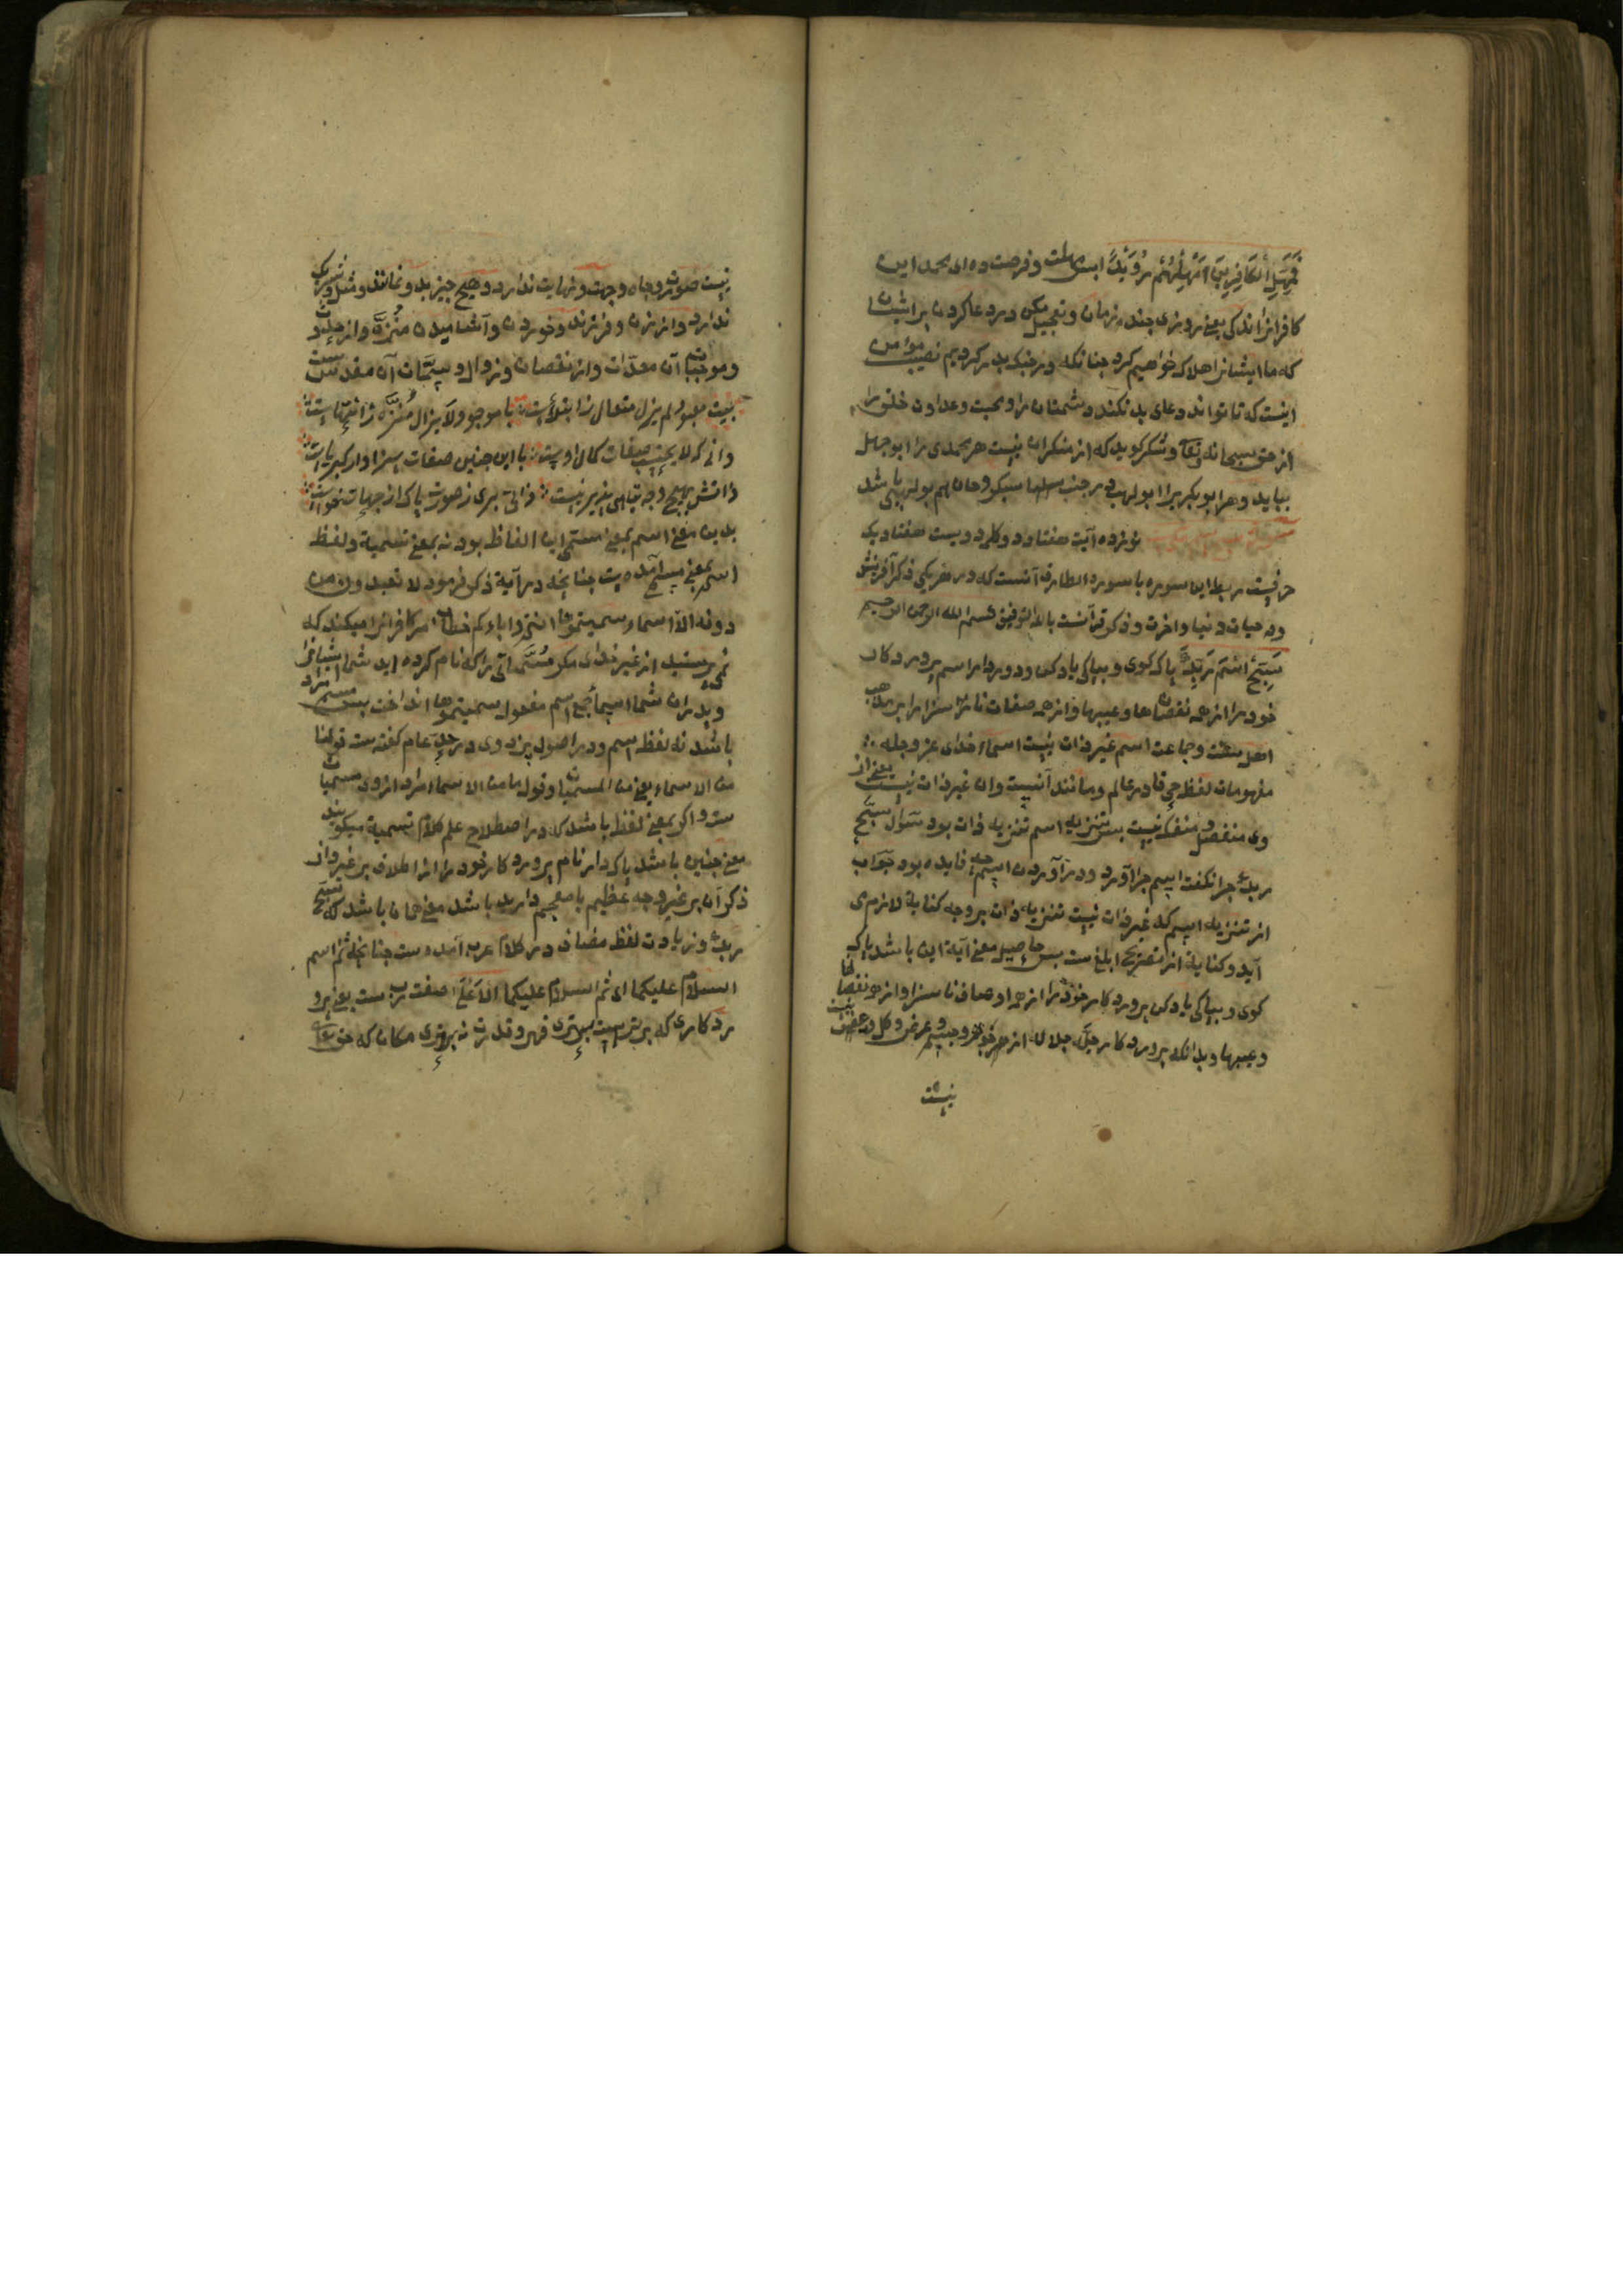 فَمَهِّلِ الْكَافِرِينَ اَمْهِلْهُمْ رُوَيْدًا پس مهلت و فرصت ده ای محمد این
کافرانرا اندکی یعنی روزی چند و زمان و تعجیل مکن در دعا کردن بر ایشان
که ما ایشانرا هلاک خواهیم کرد چنانکه در جنک بدر کردیم نصیب مؤمن
اینست که تا تواند دعای بد نکند دشمنان را و محبت و عداوت خلق را
از حق سبحانه وتعالی و شکر کوید که از منکران نیست هر محمدی را ابو جهل
بباید و هر ابو بکر یرا ابو لهب در جنب هم بو لهبی باشد
نوزده آیت هفتاد دو کلمه دویست هفتاد یک
حرفیست ربط این سوره با سوره الطارق آنست که در هریکی ذکر آفرینش
و حیات دنیا و اخرت و ذکر قرآنست بالله التوفیق بسم الله الرحمن الرحیم
سَبِّحِ اسْمَ رَبِّكَ پاک کوی و بپاکی یاد کن و دور دار اسم پروردکار
خود را از همه نقصانها و عیبها و از همه صفات نا سزا را بر مذهب
اهل سنت و جماعت اسم غیر ذات نیست اسماء خدای عز وجل
مفهومات لفظ حی قادر عالم و مانند آنست وان غیر ذات نیست یعنی از
وی منفصل و منفک نیست پس تنزیه اسم تنزیه ذات بود سؤال سَبِّح
ربک چرا نکفت اسم چرا آورد و در آوردن اسم چه فایده بود جواب
از تنزیه اسم که غیر ذات نیست تنزیه ذات بر وجه کنایة لازم می
آید و کنایة از تصریح ابلغ ست پس حاصل معنی آیة این باشد پاک
کوی و بپاکی یاد کن پروردکار خود را از همه اوصاف نا سزا و از همه نقصانها
و عیبها و بدانکه پروردکار جل جلاله از جوهر و جسم و عرض و کل و بعض نیست
نیست
نیست صورت و جاه و جهت و نهایت ندارد و هیچ چیز بد و نماند و مثل و شریک
ندارد و از زن و فرزند و خوردن و آشامیدن منزّه و از
و موجبات آن معرّات و از نقصان و زوال و سمات آن مقدس ست
بیت معبود لم یزل متعال با موجود لا یزال مُنزّه ز انتهاست
دانی که لا یجب صفات کمال اوست با این چنین صفات سزاوار کبریاست
ذاتش بهیچ وجه تناهی پذیر نیست ذاتی بری ز صورت پاک از جهات
بدین معنی اسم بمعنی مسمی این الفاظ بود نه بمعنی تسمیة و لفظ
اسم بمعنی مسمی آمده ست چنانچه در آیة ذکر فرمود لا تعبدون من
دونه الا اسماء سمیتموها انتم و اباءکم خطاب مر کافرانرا میکند که
نمی پرستید از غیر خدای مکر مُسَمَّیاتی را که نام کرده اید شما ایشانرا
و پدران شما اسما جمع اسم مفعول سمیتموها انداخت پس مسمی مراد
باشد نه لفظ اسم و در اصول بزدوی در حد عام کفته ست قولنا
من الاسماء یعنی من المسمیات و قوله ما من الاسماء مراد از وی مسمیات
ست و اکر بمعنی لفظ باشد که در اصطلاح علم کلام تسمیة میکویند
معنی چنین باشد پاک دار نام پروردکار خود را از اطلاق بر غیر و از
ذکر آن بر غیر وجه عظیم یا مقحم دارید باشد معنی همان باشد که سبح
ربک و زیادت لفظ مضاف در کلام عرب آمده ست چنانچه ثم اسم
السلام علیکما ای ثم السلام علیکما الاَعْلَی صفت رب ست یعنی پرو
ردکاری که برترست ببرتری قهر و قدرت نه برتری مکان که حق تعالی